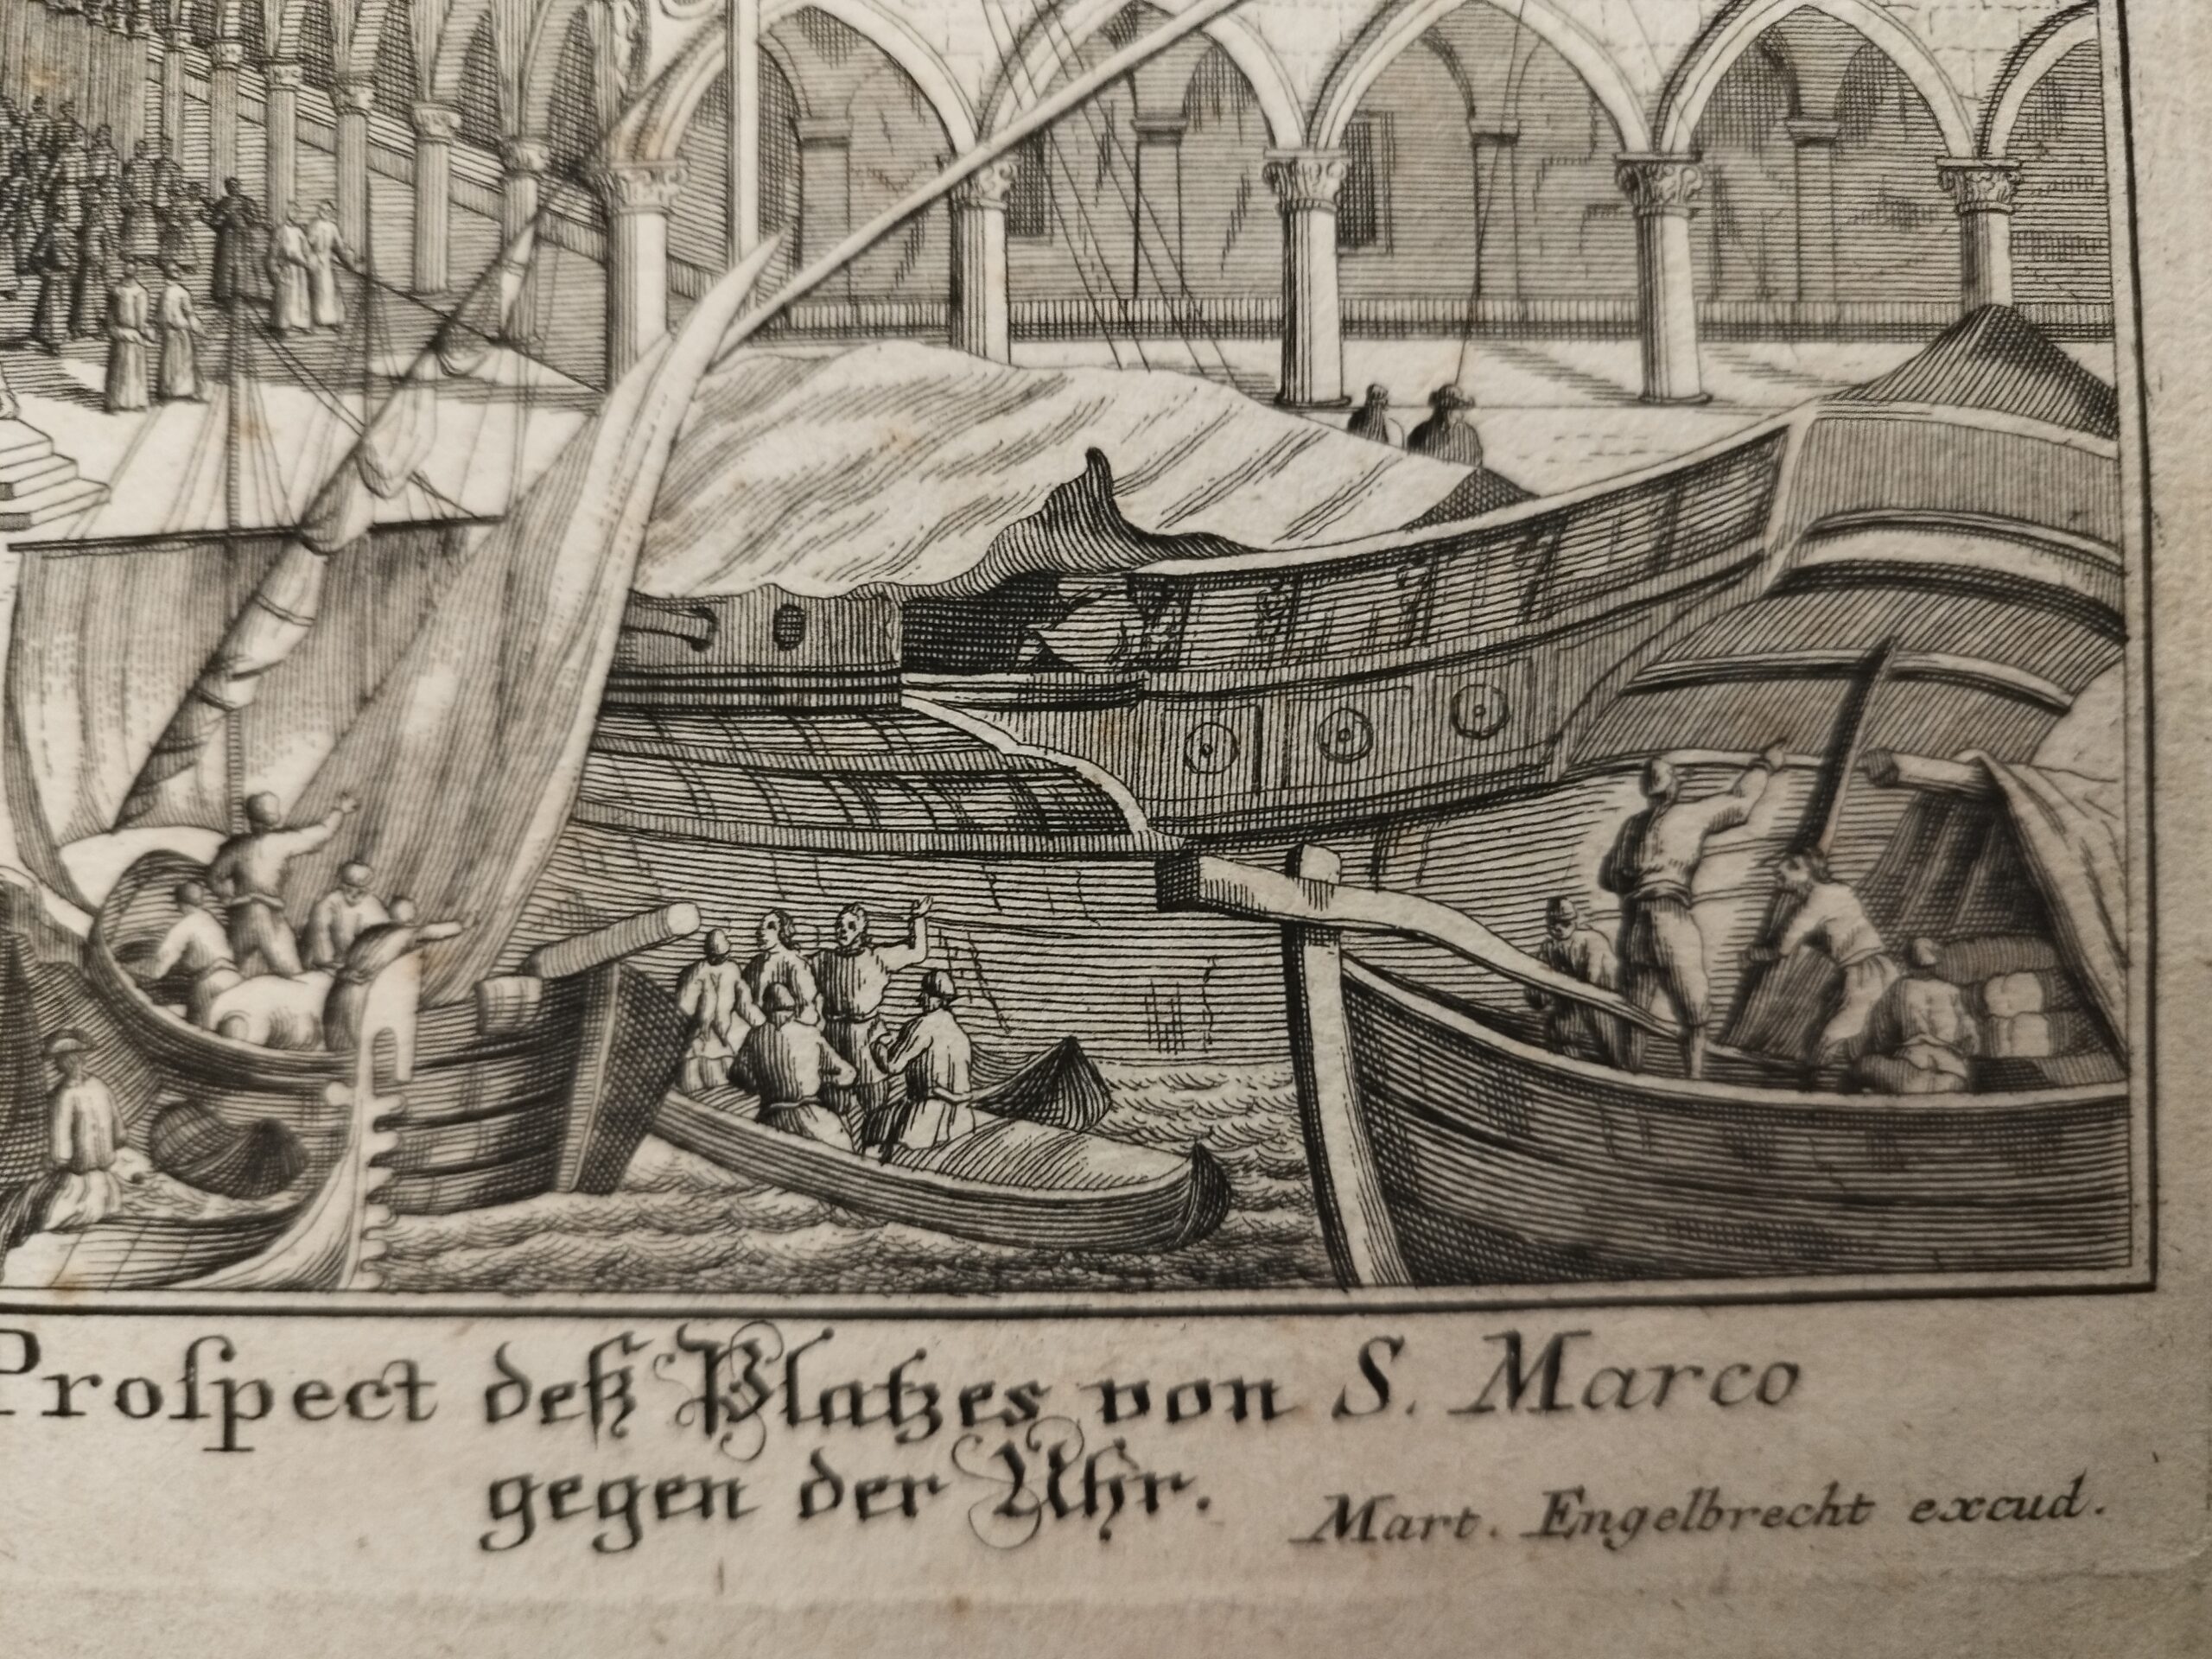 Proſpect deß Platzes von S. Marco
gegen der Uhr.
Mart. Engelbrecht excud.